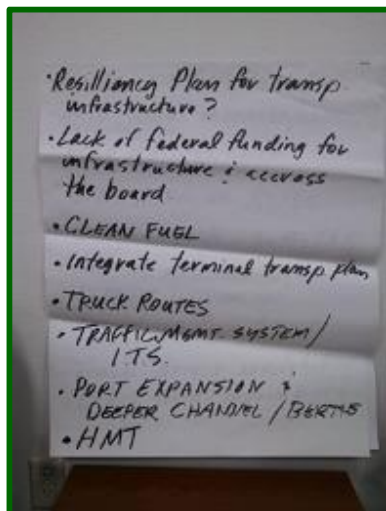 • Resilliancy Plan for transp
infrastructure?
• Lack of federal funding for
infrastructure & accross
the board
• CLEAN FUEL
• Integrate terminal transp plan
• TRUCK ROUTES
• TRAFFIC MGMT SYSTEM/
ITS.
• PORT EXPANSION &
DEEPER CHANNEL / BERTHS
• HMT